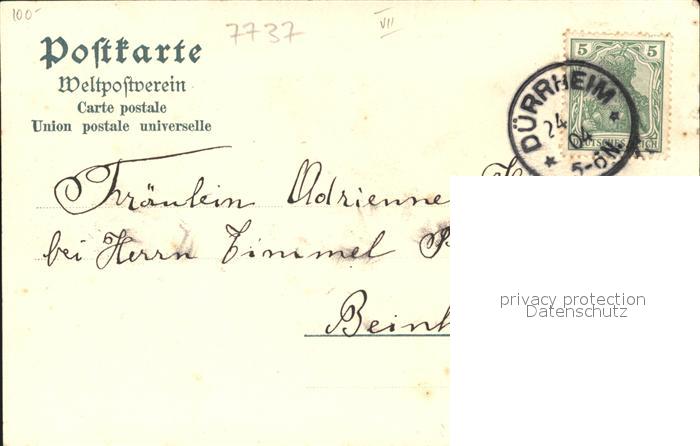 100-
7737
VII
Postkarte
Weltpostverein
Carte postale
Union postale universelle
5 5
DEUTSCHES REICH
DÜRRHEIM
24
04
5-6N.
Fräulein Adrienne
bei Herrn Timmel
privacy protection
Datenschutz